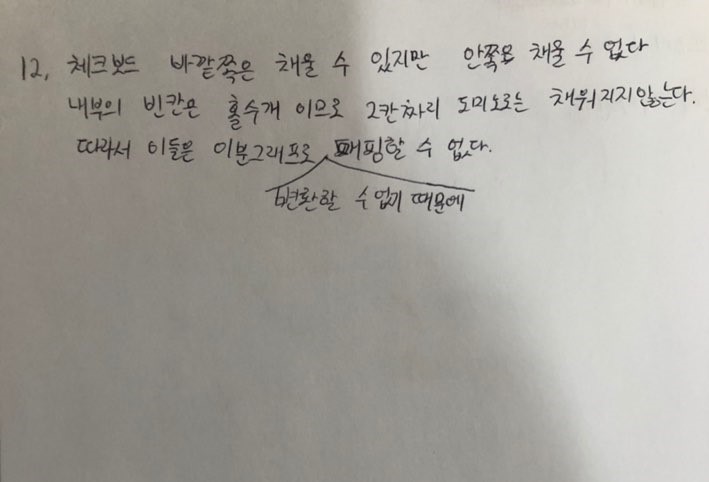 12. 체크보드 바깥쪽은 채울 수 있지만 안쪽은 채울 수 없다
내부의 빈칸은 홀수개 이므로 2칸짜리 도미노로는 채워지지않는다.
따라서 이들은 이분그래프로 매핑할 수 없다.
변환할 수 없기 때문에